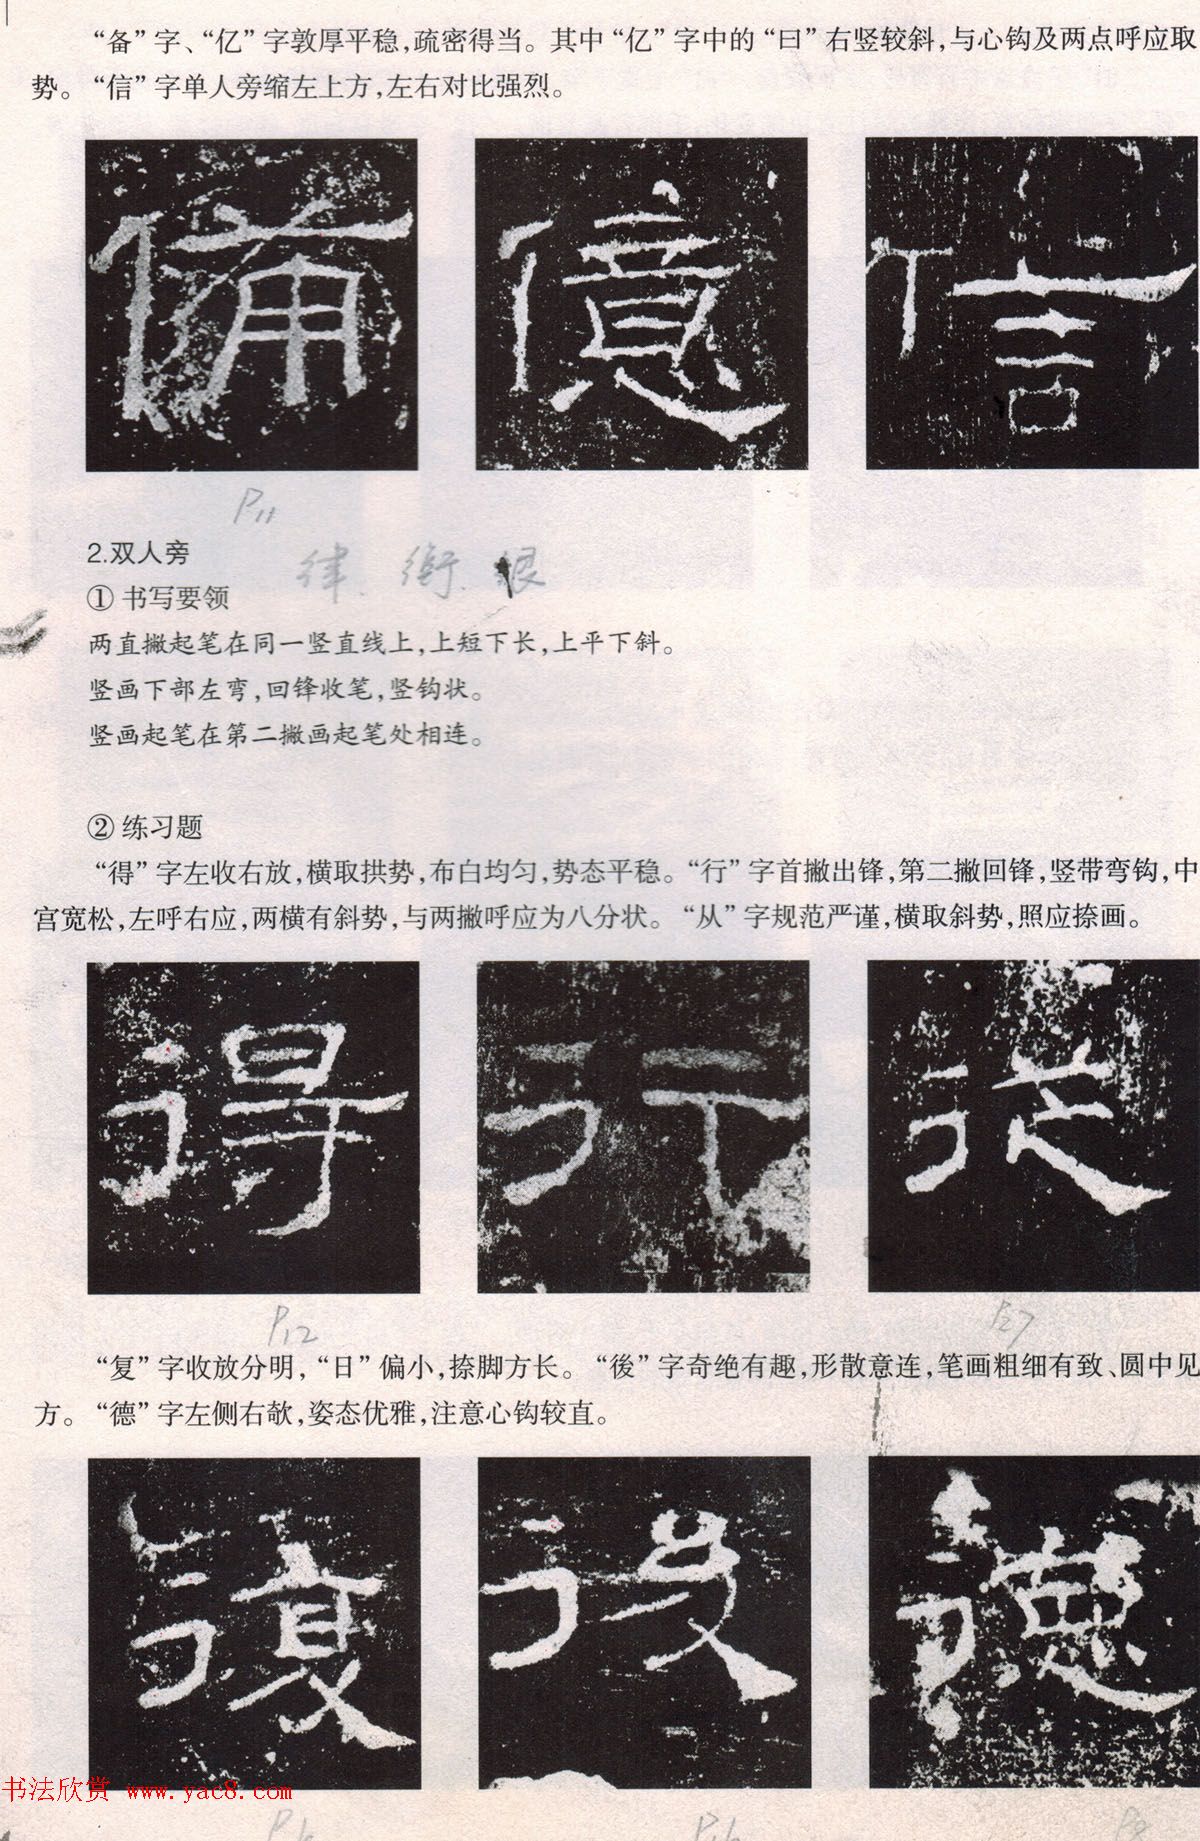 “备”字、“亿”字敦厚平稳,疏密得当。其中“亿”字中的“曰”右竖较斜,与心钩及两点呼应取
势。“信”字单人旁缩左上方,左右对比强烈。
備 億 信
P11
2.双人旁
律、衡、很
① 书写要领
两直撇起笔在同一竖直线上,上短下长,上平下斜。
竖画下部左弯,回锋收笔,竖钩状。
竖画起笔在第二撇画起笔处相连。
② 练习题
“得”字左收右放,横取拱势,布白均匀,势态平稳。“行”字首撇出锋,第二撇回锋,竖带弯钩,中
宫宽松,左呼右应,两横有斜势,与两撇呼应为八分状。“从”字规范严谨,横取斜势,照应捺画。
得 行 從
P12 P27
“复”字收放分明,“日”偏小,捺脚方长。“後”字奇绝有趣,形散意连,笔画粗细有致、圆中见
方。“德”字左侧右欹,姿态优雅,注意心钩较直。
復 後 德
书法欣赏 www.yac8.com